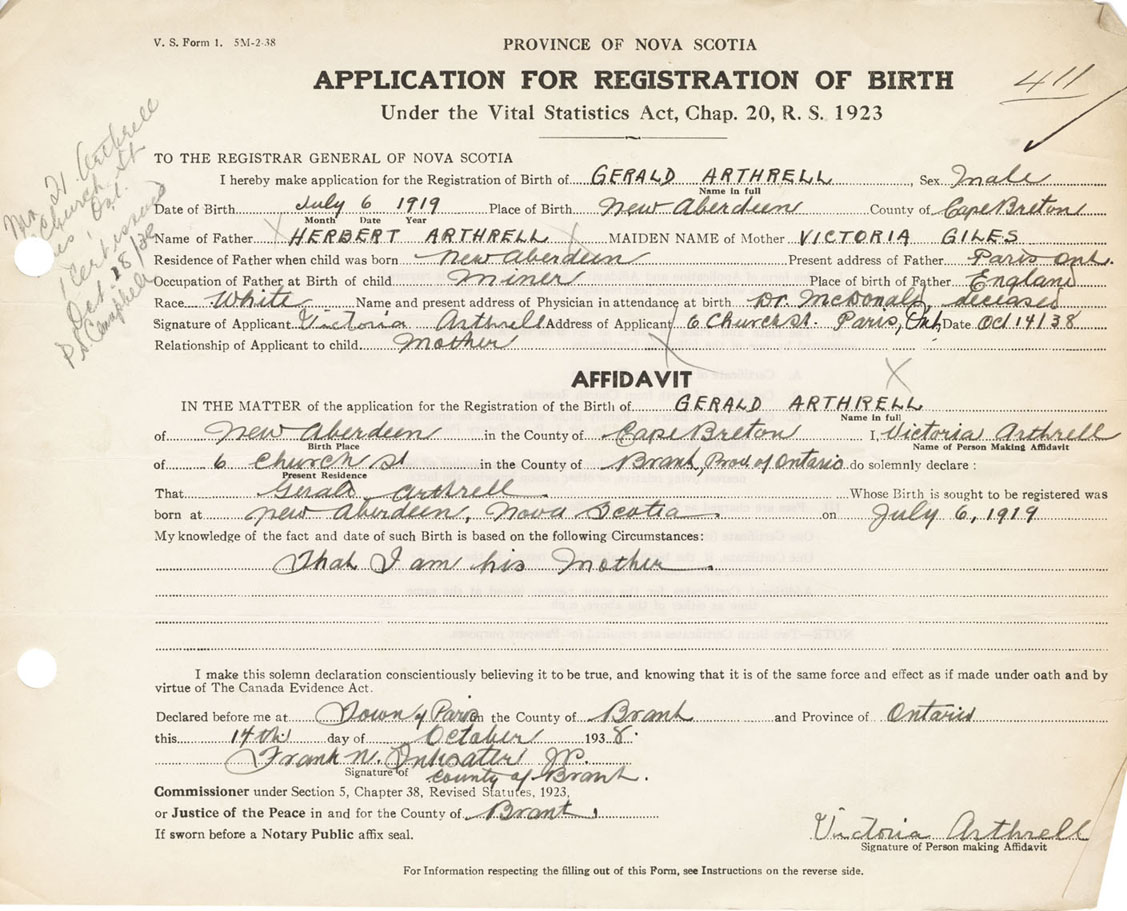 V. S. Form 1. 5M-2-38
PROVINCE OF NOVA SCOTIA
APPLICATION FOR REGISTRATION OF BIRTH
411
Under the Vital Statistics Act, Chap. 20, R. S. 1923
Mr. H. Arthrell
Church St
Ont.
1 Cert issued
Oct. 18/38
Campbell
TO THE REGISTRAR GENERAL OF NOVA SCOTIA
I hereby make application for the Registration of Birth of GERALD ARTHRELL, Sex Male
Name in full
Date of Birth July 6 1919 Place of Birth New Aberdeen County of Cape Breton
Month Date Year
Name of Father HERBERT ARTHRELL MAIDEN NAME of Mother VICTORIA GILES
Residence of Father when child was born New Aberdeen Present address of Father Paris Ont.
Occupation of Father at Birth of child Miner Place of birth of Father England
Race White Name and present address of Physician in attendance at birth Dr. McDonald, deceased
Signature of Applicant Victoria Arthrell Address of Applicant 6 Church St. Paris, Ont, Date Oct 14/38
Relationship of Applicant to child Mother
AFFIDAVIT
IN THE MATTER of the application for the Registration of the Birth of GERALD ARTHRELL
Name in full
of New Aberdeen in the County of Cape Breton I, Victoria Arthrell
Birth Place Name of Person Making Affidavit
of 6 Church St in the County of Brant, Prov of Ontario do solemnly declare :
Present Residence
That Gerald Arthrell Whose Birth is sought to be registered was
born at New Aberdeen, Nova Scotia on July 6, 1919
My knowledge of the fact and date of such Birth is based on the following Circumstances:
That I am his Mother.
I make this solemn declaration conscientiously believing it to be true, and knowing that it is of the same force and effect as if made under oath and by
virtue of The Canada Evidence Act.
Declared before me at Town of Paris in the County of Brant and Province of Ontario
this 14th day of October 1938.
Frank N. Inksater JP.
Signature of County of Brant.
Commissioner under Section 5, Chapter 38, Revised Statutes, 1923,
or Justice of the Peace in and for the County of Brant.
If sworn before a Notary Public affix seal.
Victoria Arthrell
Signature of Person making Affidavit
For Information respecting the filling out of this Form, see Instructions on the reverse side.